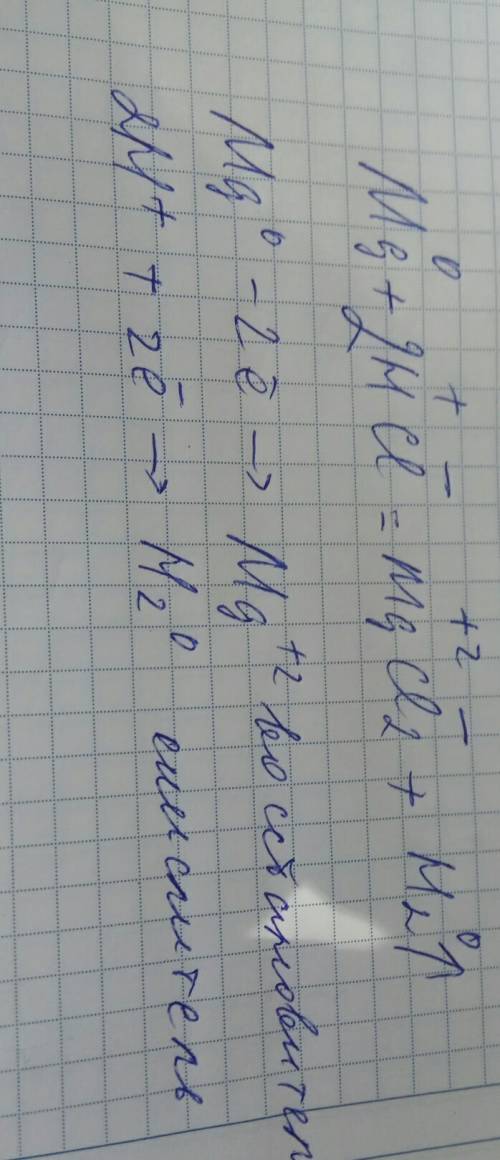 Mg⁰ + 2H⁺Cl⁻ = Mg⁺²Cl₂⁻ + H₂⁰↑
Mg⁰ - 2e̅ → Mg⁺² восстановител
2H⁺ + 2e̅ → H₂⁰ окислитель